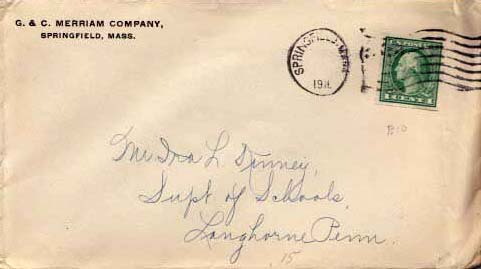 G. & C. MERRIAM COMPANY,
SPRINGFIELD, MASS.
SPRINGFIELD, MASS.
191
U.S. POSTAGE
1 CENT 1
L.
Supt of Schools,
Langhorne Penn.
15